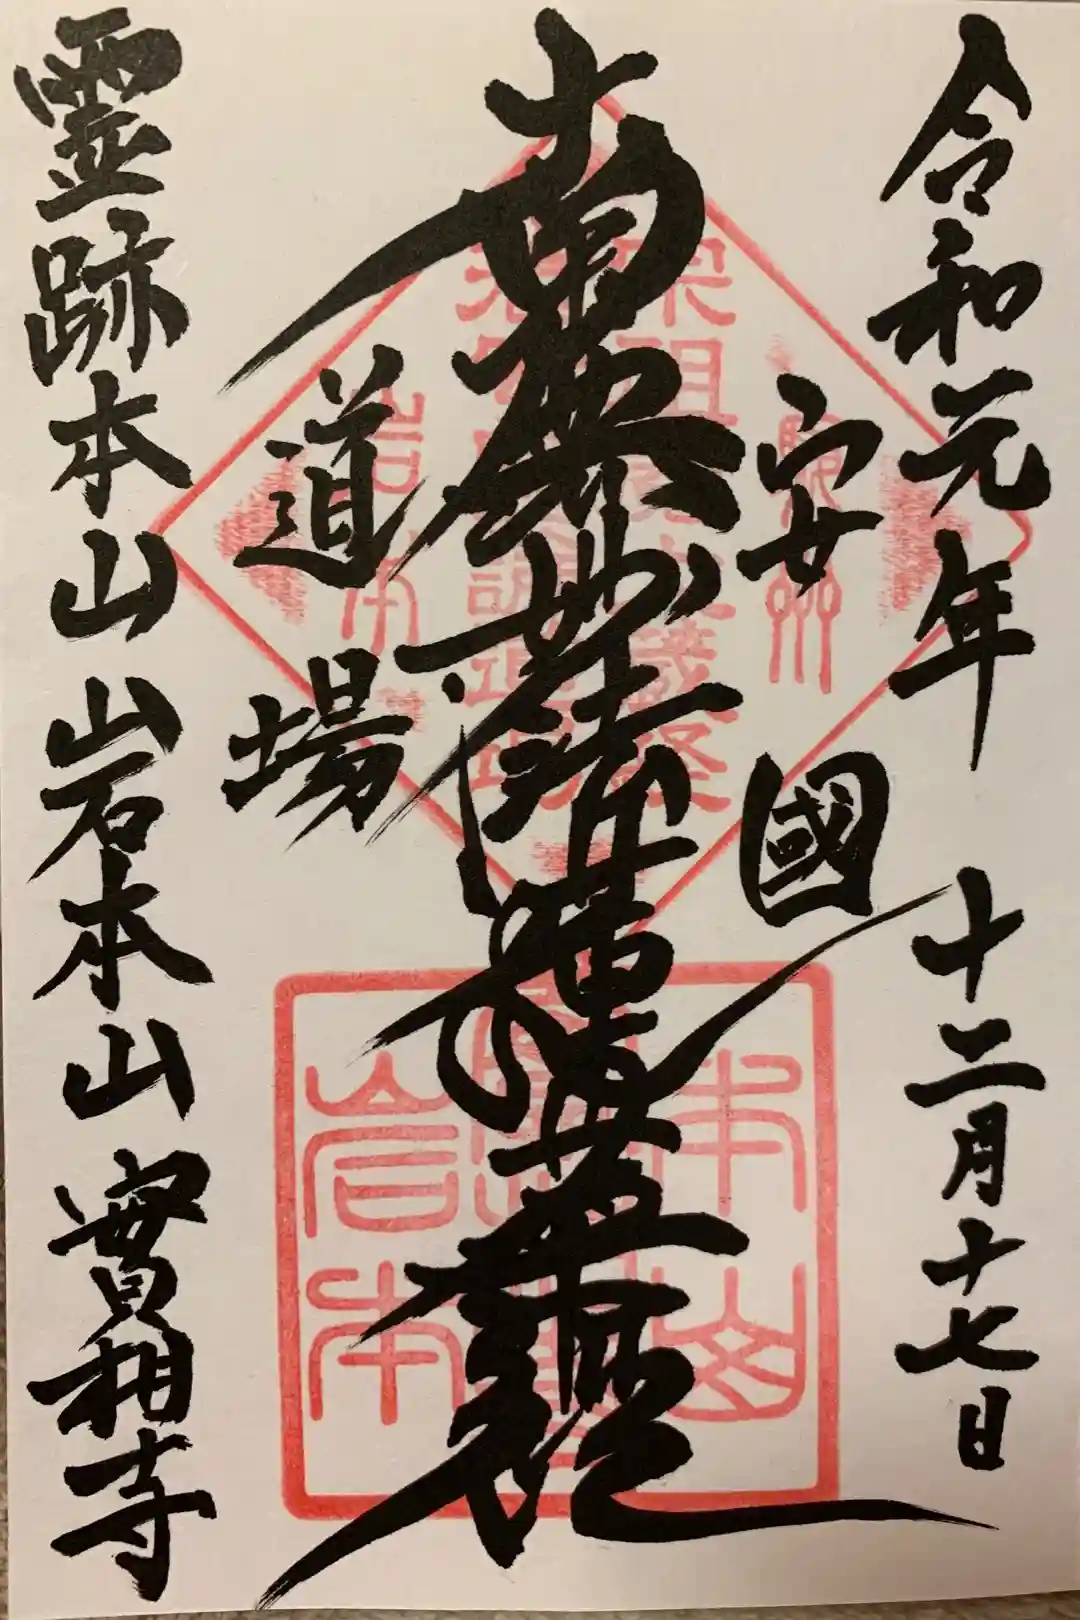 令和元年 十二月十七日
安國
南無妙法蓮華経
道場
霊跡本山 岩本山 實相寺